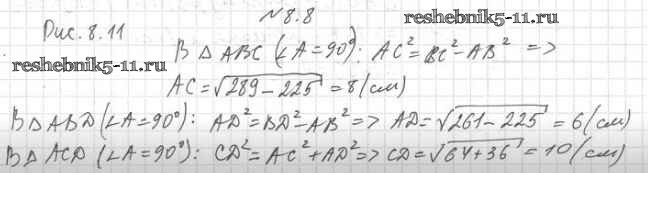 №8.8
reshebnik5-11.ru
Рис. 8.11
В △ ABC (∠A=90°): AC²=BC²-AB² =>
reshebnik5-11.ru
AC=√289-225 = 8(см)
В △ ABD (∠A=90°): AD²=BD²-AB² => AD=√261-225 = 6(см)
В △ ACD (∠A=90°): CD²=AC²+AD² => CD=√64+36 = 10(см)